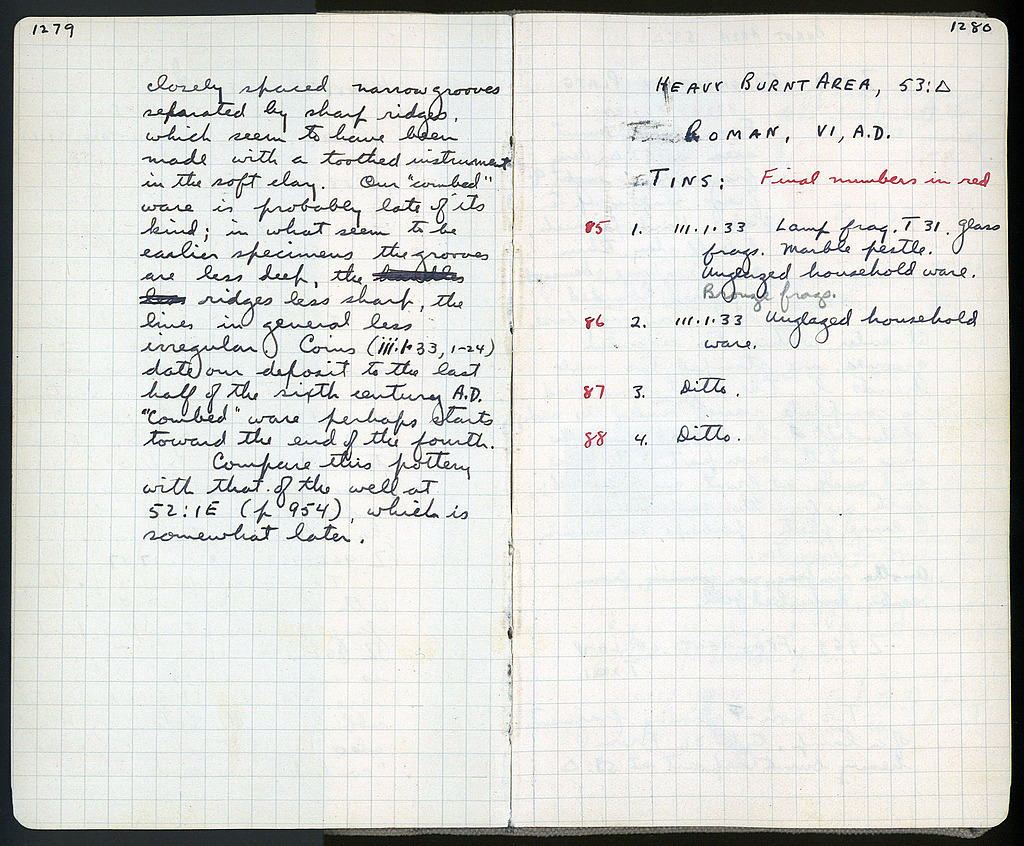 1279
closely spaced narrow grooves
separated by sharp ridges,
which seem to have been
made with a toothed instrument
in the soft clay. Our "combed"
ware is probably late of its
kind; in what seem to be
earlier specimens the grooves
are less deep, the
ridges less sharp, the
lines in general less
irregular. Coins (iii.1.33, 1-24)
date our deposit to the last
half of the sixth century A.D.
"Combed" ware perhaps starts
toward the end of the fourth.
Compare this pottery
with that of the well at
52:1E (p 954), which is
somewhat later.
1280
HEAVY BURNT AREA, 53:Δ
ROMAN, VI, A.D.
TINS: Final numbers in red
85 1. III.1.33 Lamp frag. T 31. Glass
frags. Marble pestle.
Unglazed household ware.
Bronze frags.
86 2. III.1.33 Unglazed household
ware.
87 3. Ditto.
88 4. Ditto.